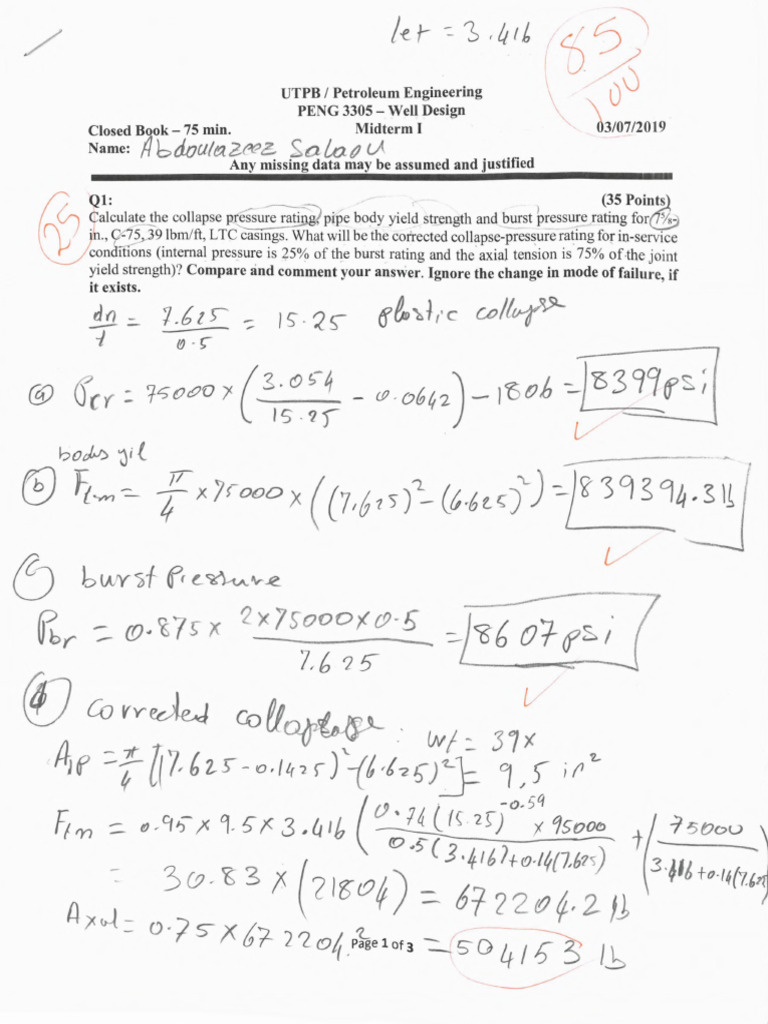 let = 3.416
85/100
UTPB / Petroleum Engineering
PENG 3305 – Well Design
Closed Book – 75 min. Midterm I 03/07/2019
Name: Abdoulazeez Salaou
Any missing data may be assumed and justified
25
Q1: (35 Points)
Calculate the collapse pressure rating, pipe body yield strength and burst pressure rating for 7⁵/₈-
in., C-75, 39 lbm/ft, LTC casings. What will be the corrected collapse-pressure rating for in-service
conditions (internal pressure is 25% of the burst rating and the axial tension is 75% of the joint
yield strength)? Compare and comment your answer. Ignore the change in mode of failure, if
it exists.
dn/t = 7.625/0.5 = 15.25 plastic collapse
(a) Pcr = 75000 × (3.054/15.25 - 0.0642) - 1806 = 8399 psi
body yil
(b) Ften = π/4 × 75000 × ((7.625)² - (6.625)²) = 839394.3 lb
c) burst Pressure
Pbr = 0.875 × 2×75000×0.5/7.625 = 8607 psi
d) corrected collapse: wt = 39x
Ajp = π/4 [(7.625 - 0.1425)² - (6.625)²] = 9,5 in²
Ften = 0.95 × 9.5 × 3.416 (0.74 (15.25)^-0.59 × 95000 / 0.5(3.416)+0.14(7.625) + (75000 / 3.416+0.14(7.625
= 30.83 × (21804) = 672204.2 lb
Axal = 0.75 × 672204.2 = 504153 lb
Page 1 of 3